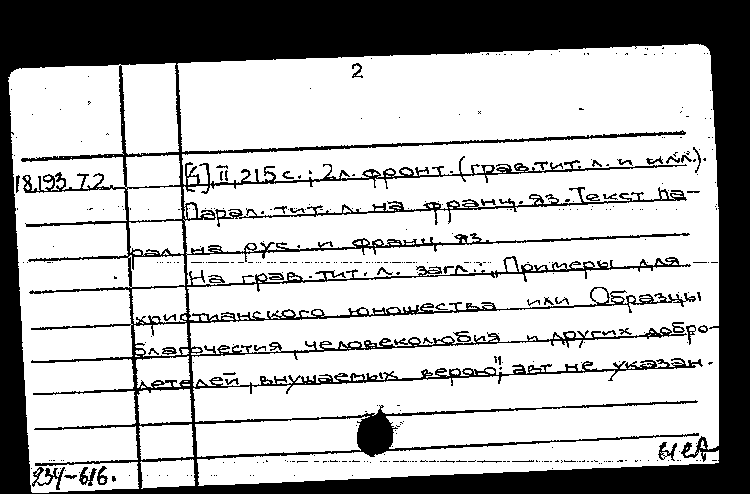 2
18.193.7.2. [4], II, 215 с.; 2 л. фронт. (грав. тит. л. и илл.).
Парал. тит. л. на франц. яз. Текст па-
рал на рус. и франц. яз.
На грав. тит. л. загл.: „Примеры для
христианского юношества или Образцы
благочестия, человеколюбия и других добро-
детелей, внушаемых верою"; авт не указан.
234-616.